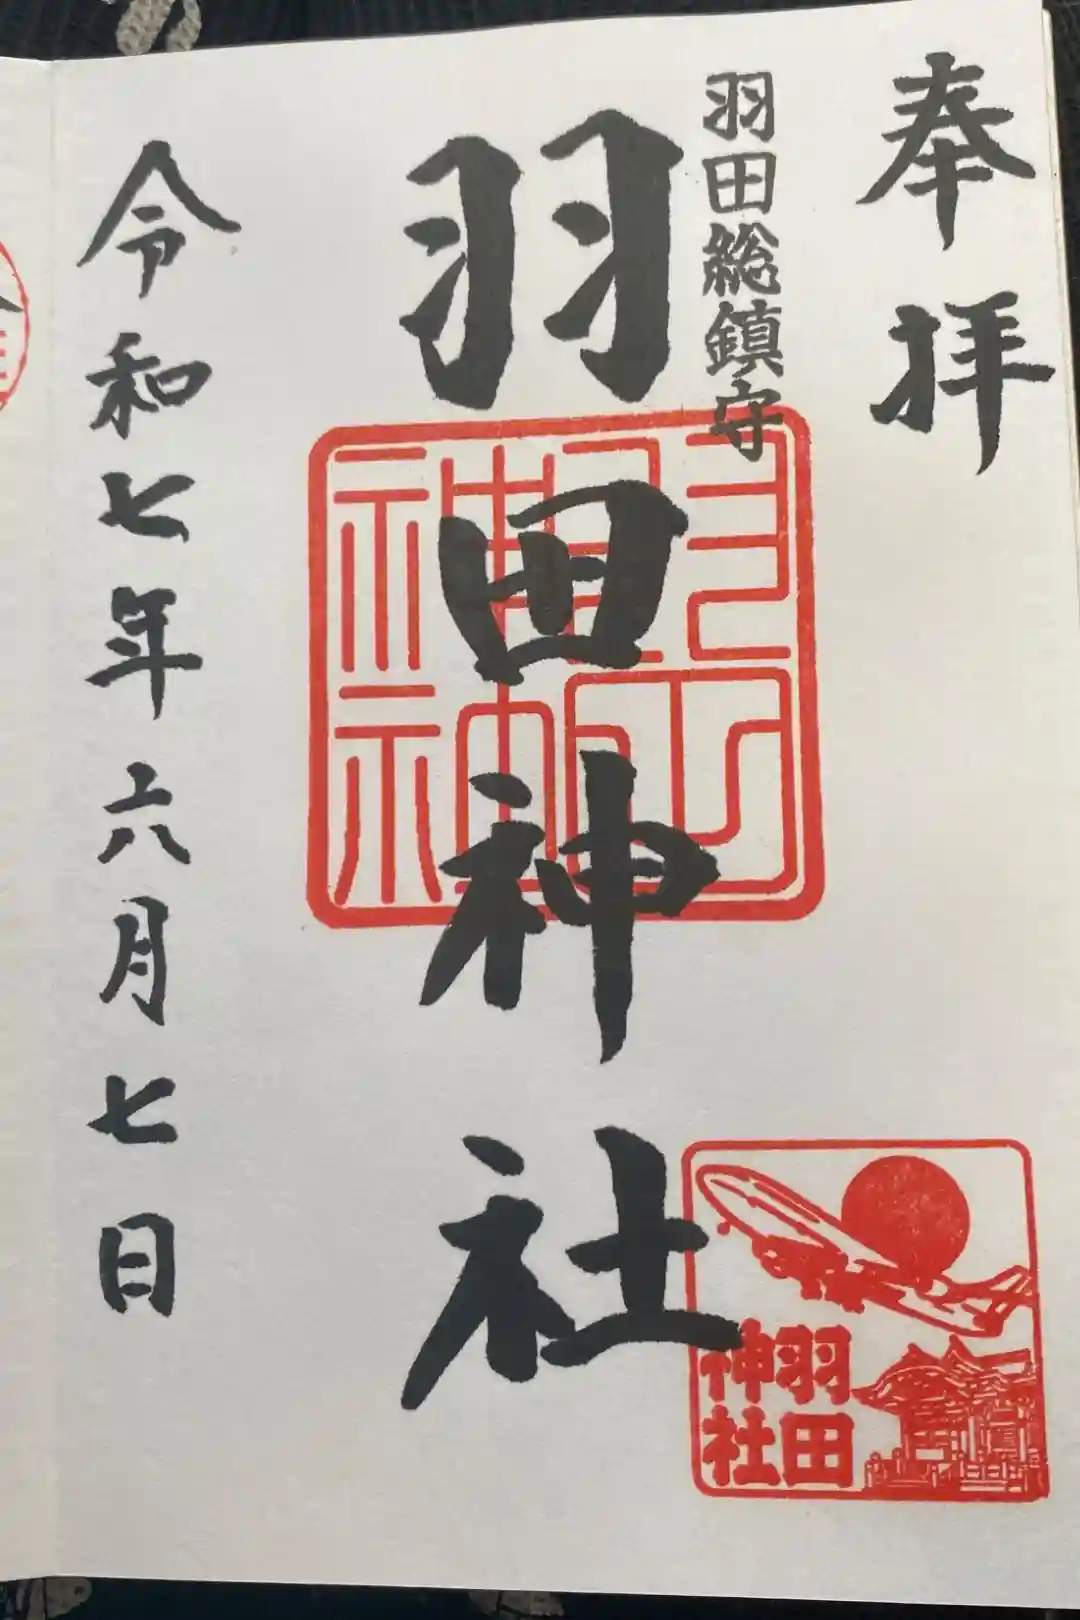 奉拝
羽田総鎮守
羽田神社
令和七年六月七日
羽田
神社